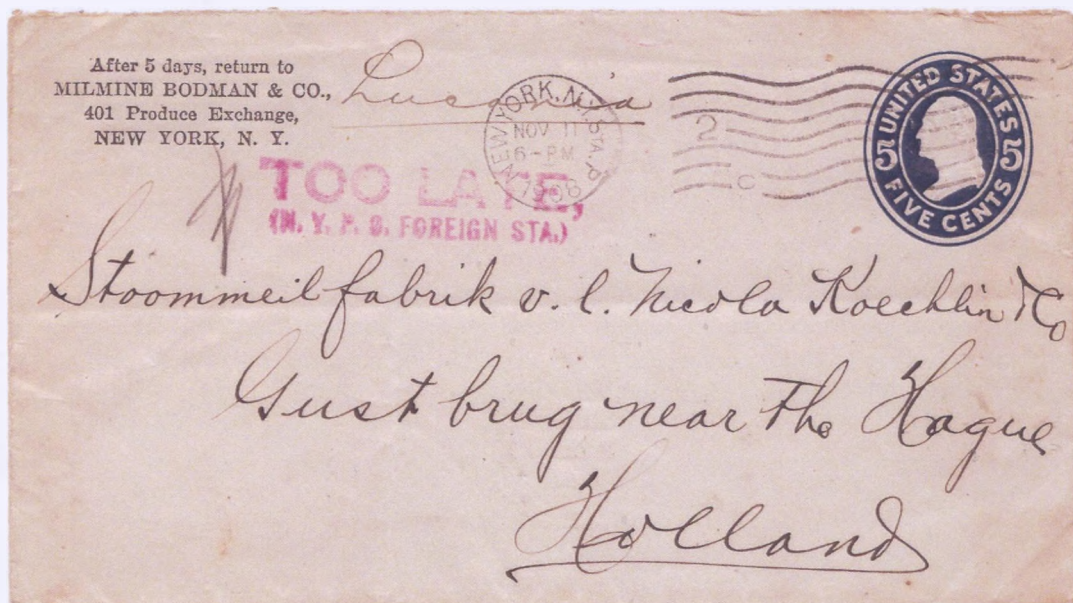 After 5 days, return to
MILMINE BODMAN & CO.,
401 Produce Exchange,
NEW YORK, N. Y.
Lucania
NEW YORK, N.Y. STA. P
NOV 11
6-PM
1908
2
C
UNITED STATES
5 5
FIVE CENTS
TOO LATE,
(N. Y. P. O. FOREIGN STA.)
Stoommeilfabrik v. l. Nicola Koechlin & Co
Gust brug near The Hague
Holland